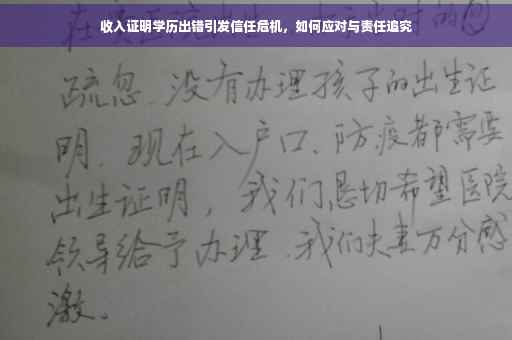 收入证明学历出错引发信任危机，如何应对与责任追究
疏忽、没有办理孩子的出生证
明、现在入户口、防疫都需要
出生证明，我们恳切希望医院
领导给予办理、我们夫妻万分感
激。